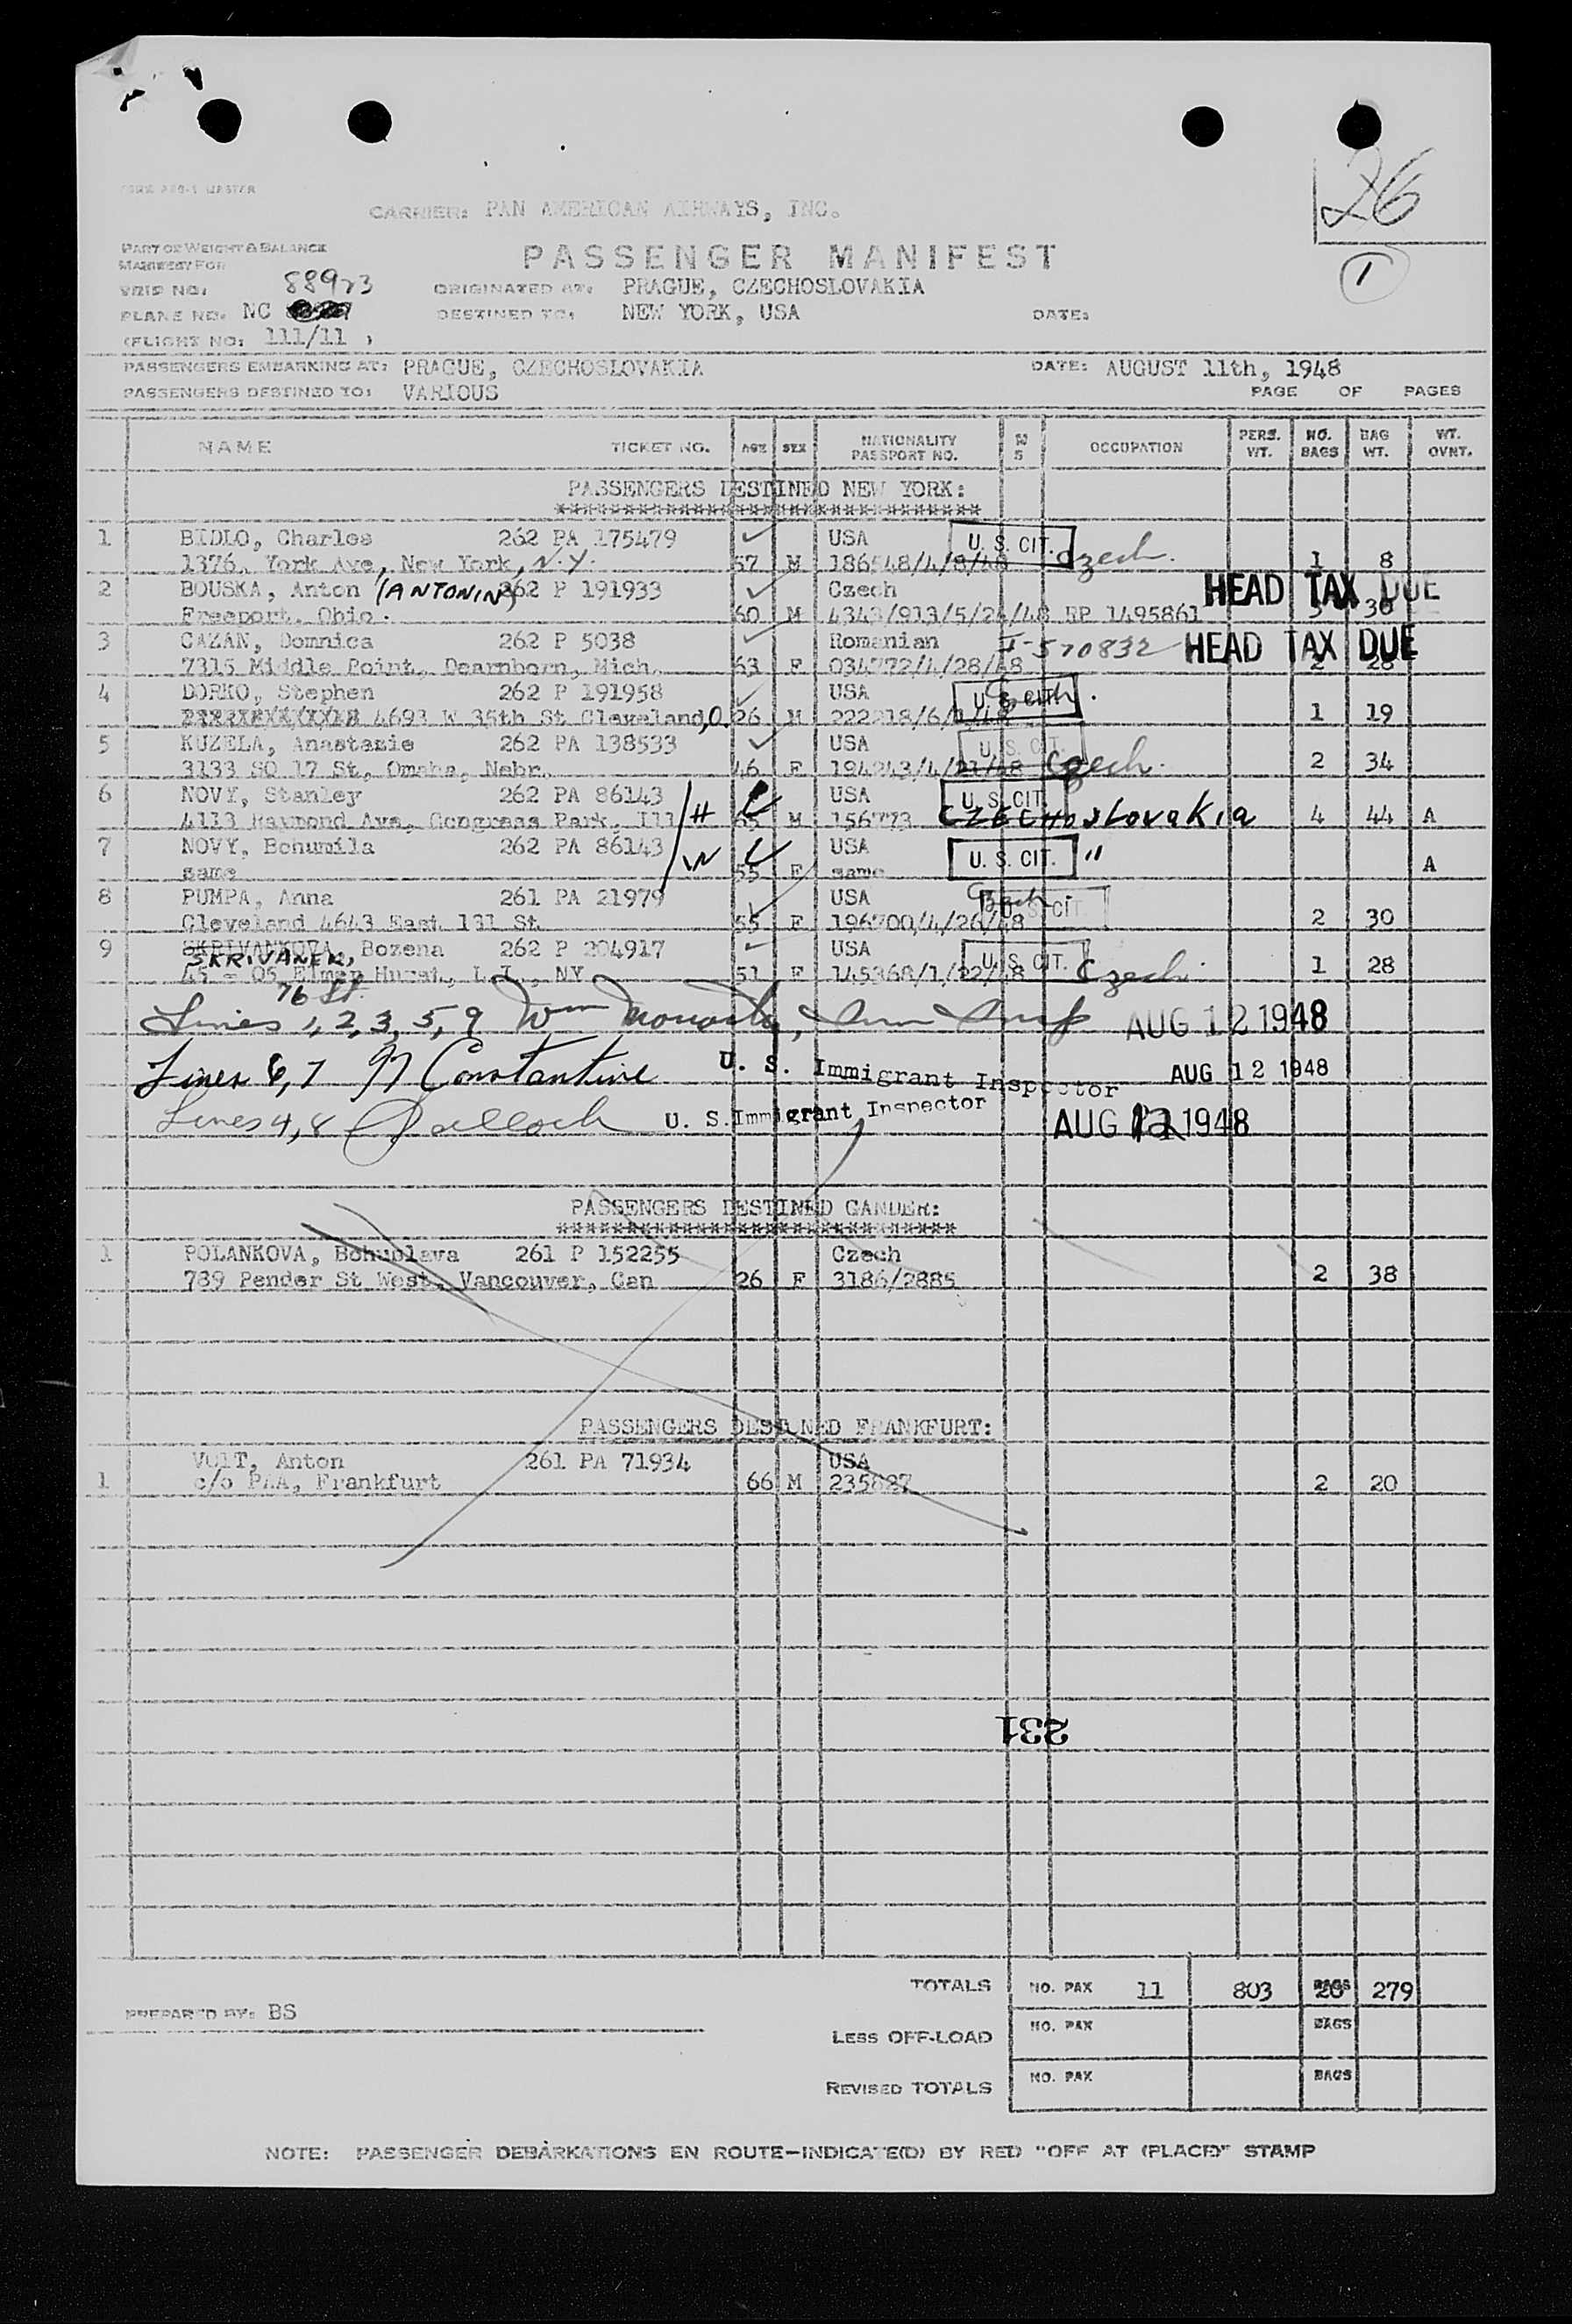 26
CARRIER: PAN AMERICAN AIRWAYS, INC.
PART OF WEIGHT & BALANCE
MANIFEST FOR
PASSENGER MANIFEST
1
TRIP NO: 88923 ORIGINATED AT: PRAGUE, CZECHOSLOVAKIA
PLANE NO. NC DESTINED TO: NEW YORK, USA DATE:
(FLIGHT NO: 111/11 )
PASSENGERS EMBARKING AT: PRAGUE, CZECHOSLOVAKIA DATE: AUGUST 11th, 1948
PASSENGERS DESTINED TO: VARIOUS PAGE OF PAGES
NAME TICKET NO. AGE SEX NATIONALITY PASSPORT NO. M S OCCUPATION PERS. WT. NO. BAGS BAG WT. WT. OVNT.
PASSENGERS DESTINED NEW YORK:
*********************************
1 BIDLO, Charles 262 PA 175479 USA U. S. CIT.
1376, York Ave, New York, N.Y. 57 M 186548/4/8/48 Czech. 1 8
2 BOUSKA, Anton (ANTONIN) 262 P 191933 Czech HEAD TAX DUE
Freeport, Ohio. 60 M 4343/913/5/24/48 RP 1495861 3 30
3 CAZAN, Domnica 262 P 5038 Romanian I-570832 HEAD TAX DUE
7315 Middle Point, Dearnborn, Mich. 63 F 034772/4/28/48 2 28
4 DORKO, Stephen 262 P 191958 USA U. S. CIT. Czech.
4693 W 35th St Cleveland, O. 26 M 1 19
5 KUZELA, Anastazie 262 PA 138533 USA U. S. CIT.
3133 SO 17 St, Omaha, Nebr. 46 F 194243/4/21/48 Czech. 2 34
6 NOVY, Stanley 262 PA 86143 H USA U. S. CIT.
4113 Raymond Ave, Congress Park, Ill 65 M 156773 CZECHOSLOVAKIA 4 44 A
7 NOVY, Bohumila 262 PA 86143 W USA U. S. CIT. "
same 55 F same A
8 PUMPA, Anna 261 PA 21979 USA Czech. U. S. CIT.
Cleveland 4643 East 131 St 55 F 196700/4/26/48 2 30
9 SKRIVANKOVA, Bozena 262 P 204917 USA U. S. CIT.
SKRIVANEK,
45 - 05 Elmer Hurst, L.I., NY 51 F 145368/1/22/48 Czech. 1 28
76 St.
Lines 1, 2, 3, 5, 9 Wm AUG 12 1948
Lines 6, 7 N Constantine U. S. Immigrant Inspector AUG 12 1948
Lines 4, 8 U. S. Immigrant Inspector AUG 12 1948
PASSENGERS DESTINED GANDER:
*****************************
1 POLANKOVA, Bohuslava 261 P 152255 Czech
789 Pender St West, Vancouver, Can 26 F 3186/2885 2 38
PASSENGERS DESTINED FRANKFURT:
VOIT, Anton 261 PA 71934 USA
1 c/o PAA, Frankfurt 66 M 235827 2 20
231
TOTALS NO. PAX 11 803 BAGS 20 279
PREPARED BY: BS
LESS OFF-LOAD NO. PAX BAGS
REVISED TOTALS NO. PAX BAGS
NOTE: PASSENGER DEBARKATIONS EN ROUTE-INDICATE(D) BY RED "OFF AT (PLACE)" STAMP